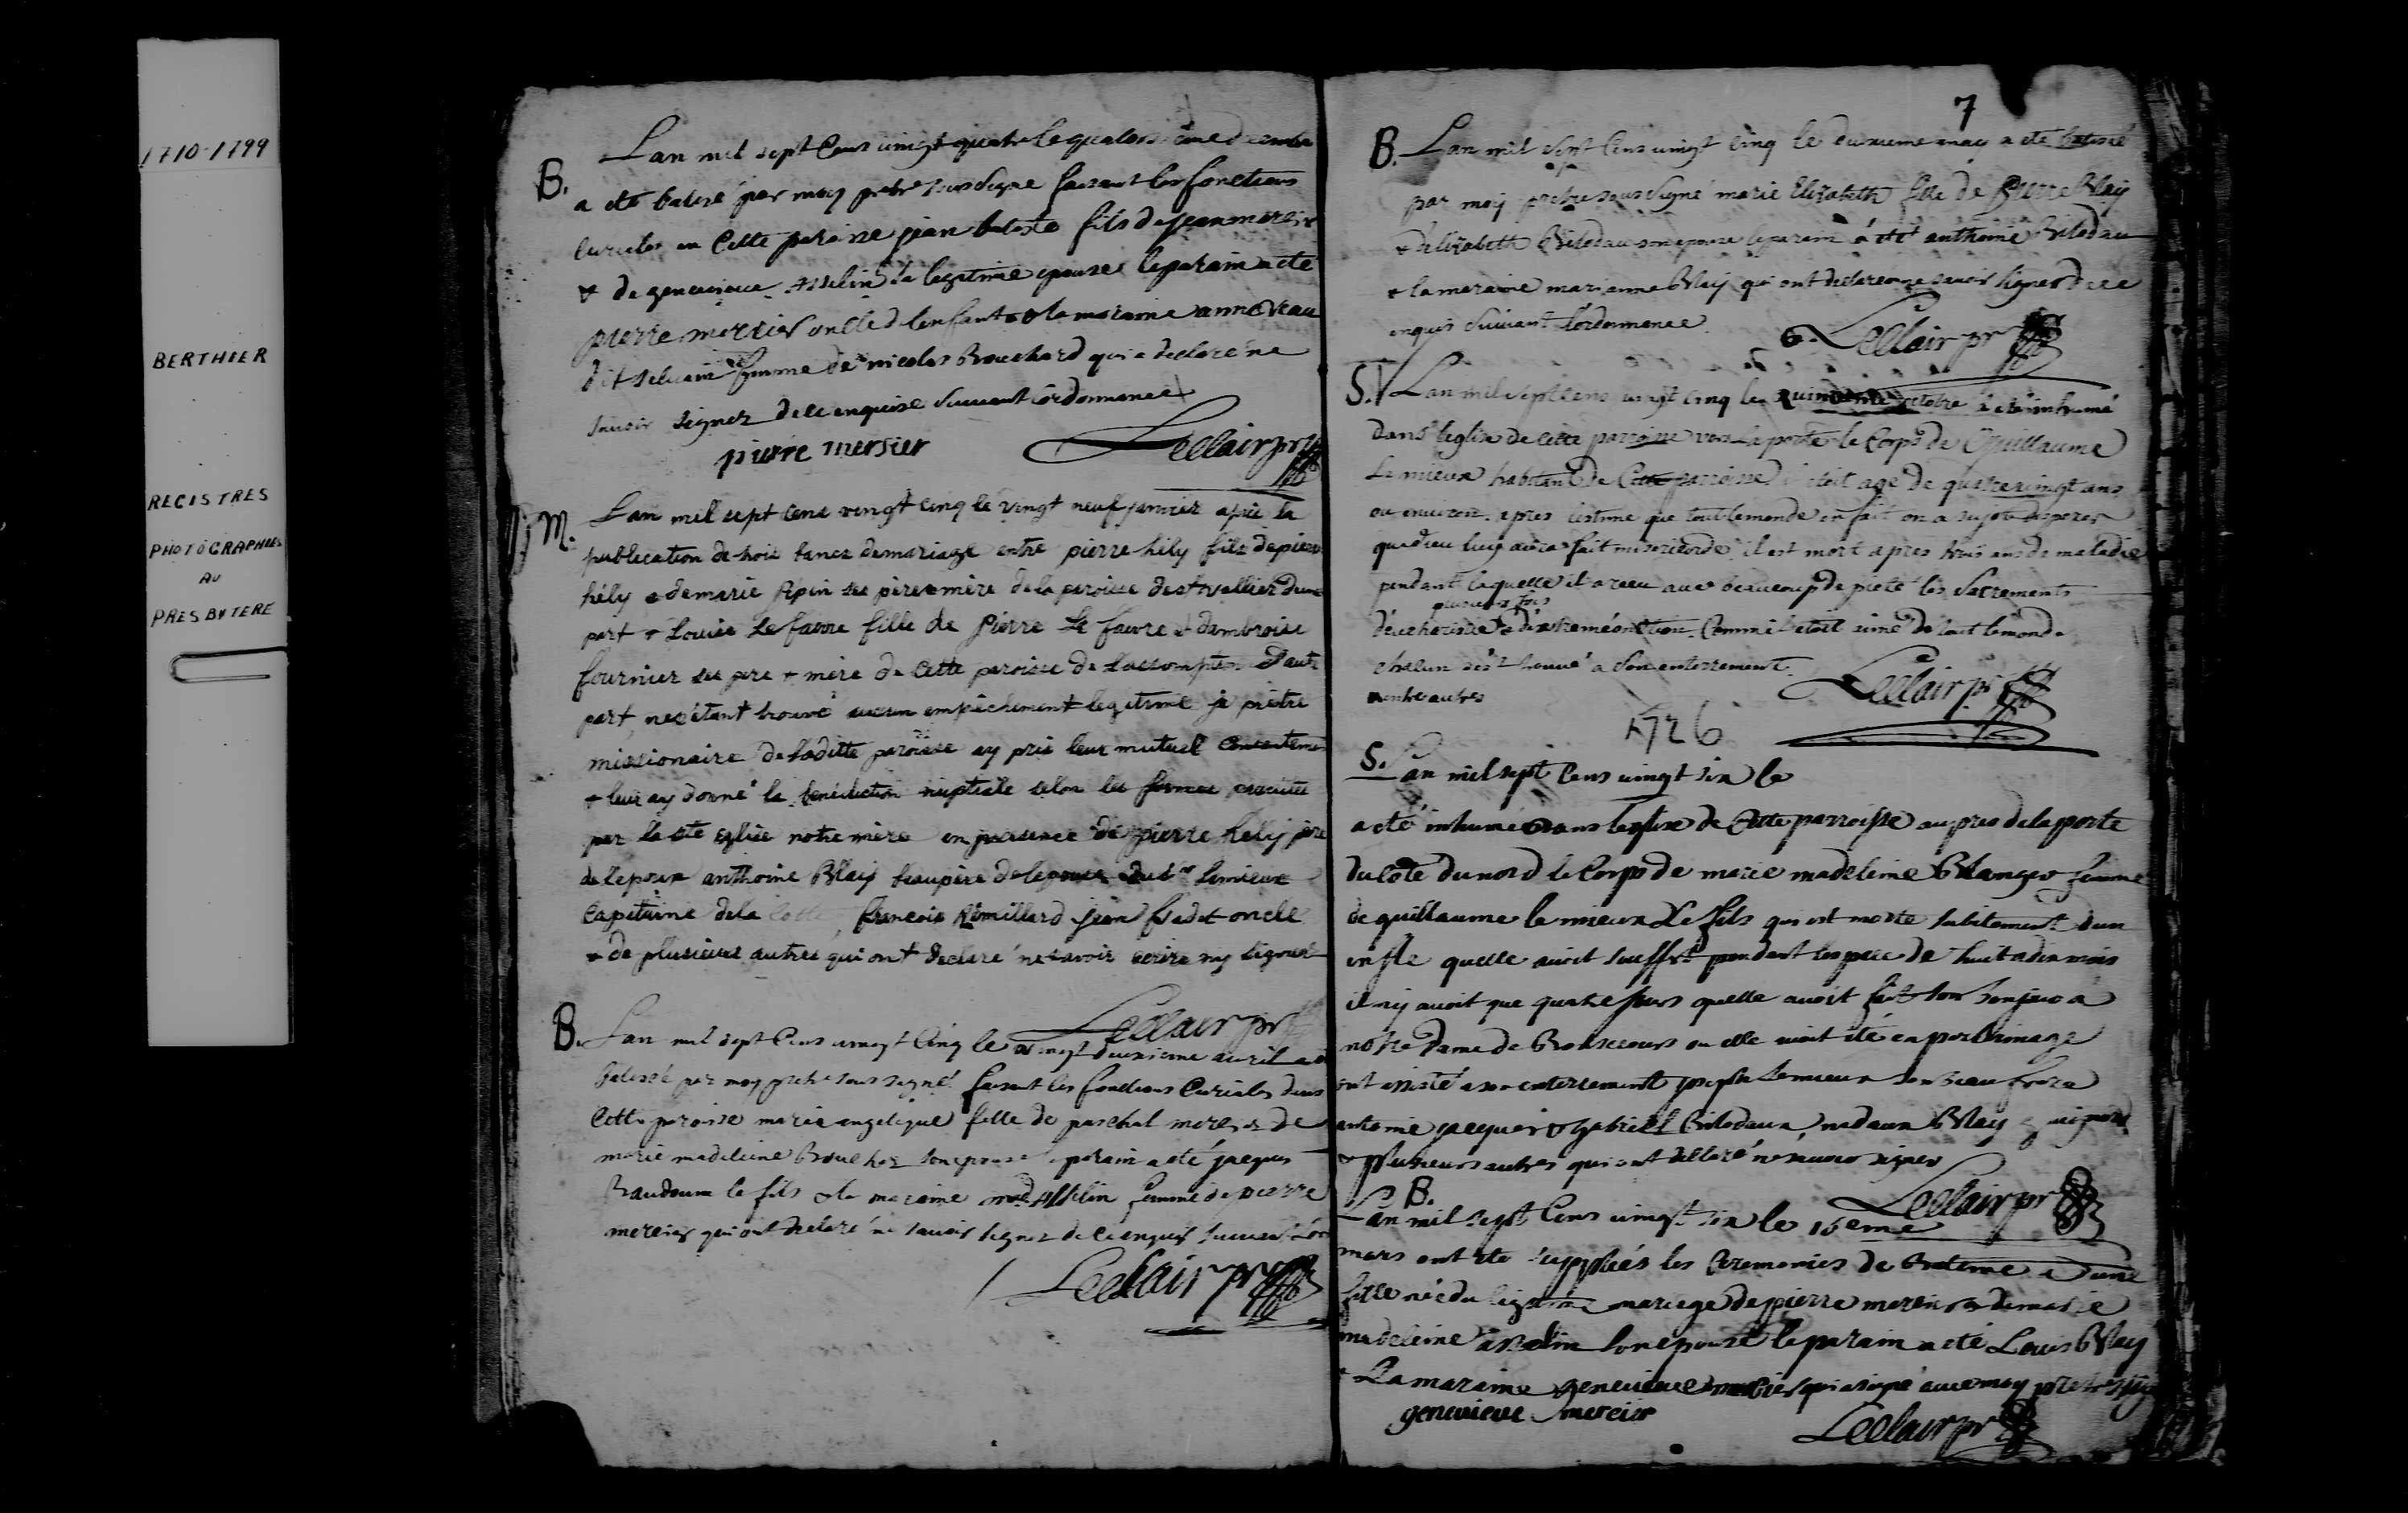 1710-1799
BERTHIER
REGISTRES
PHOTOGRAPHIEES
AU
PRESBYTERE
Lan mil sept Cens vingt quatre le quatorzieme decembre
B.
a eté batisé par moy prtre sous signe faisant les fonctions
curiales en Cette paroisse jean batiste fils de jean mercier
& de genevieve Asselin sa legitime epouse le parain a eté
pierre mercier oncle d lenfant & la maraine anne veau
dit silvain femme de nicolas Bouchard qui a declaré ne
savoir signer de ce enquise suivant lordonnance
pierre mersier Leclair pr
M. Lan mil sept cens vingt cinq le vingt neuf janvier aprés la
publication de trois bancs de mariage entre pierre hély fils de pierre
hély & de marie pépin ses pere & mère de la paroisse de st vallier dune
part & Louise Le favre fille de Pierre Le favre & dambroise
fournier ses pere & mère de Cette paroisse de lassomption dautre
part, ne sétant trouvé aucun empêchement legitime je prêtre
missionaire de laditte paroisse ay pris leur mutuel consentement
& leur ay donné la bénédiction nuptiale selon les formes prescrites
par la ste eglise notre mère en presence de pierre hély père
de lepoux anthoine Blay beaupère de lepouse du sr Lemieux
Capitaine dela Coste, francois Rémillard jean fradet oncle
& de plusieurs autres qui ont declaré ne savoir ecrire ny signer
Leclair pr
B. Lan mil sept Cens vingt Cinq le vingt deuxieme avril a eté
batissé par moy pretre sous signé faisant les fonctions Curiales dans
Cette paroisse marie angelique fille de paschal mercier & de
marie madeleine Boucher son epouse le parain a eté jacques
Baudouin le fils & la maraine mad Asselin femme de pierre
mercier qui ont declaré ne savoir signer de ce enquis suivant lor
Leclair pr
7
B. Lan mil sept Cens vingt Cinq le deuxieme may a eté batisé
par moy pretre sous signé marie Elizabeth fille de Pierre Blay
& delizabeth Bilodau son epouse le parain a eté anthoine Bilodau
& la maraine marianne Blay qui ont declare ne savoir signer de ce
enquis suivant lordonnance.
Leclair pr
S. Lan mil sept cens vingt cinq le quinzieme octobre a eté inhumé
dans leglise de cette parroisse vers la porte le Corps de Guillaume
Le mieux habitant de Cette parroisse il étoit agé de quatre vingt ans
ou environ. apres lestime que tout le monde en fait on a sujet desperer
que dieu luy aura fait misericorde il est mort apres trois ans de maladie
pendant laquelle il a receu avec beaucoup de pieté les Sacrements
plusieurs fois
deucharistie & dextreme onction. Comme il etoit aimé de tout le monde
chacun sést trouvé a son enterrement.
entre autres Leclair pr
1726
S. Lan mil sept Cens vingt six le
a eté inhumé dans leglise de Cette parroisse aupres de la porte
du Coté du nord le Corps de marie madeleine Blanger femme
de guillaume le mieux Le fils qui est morte subitement dun
enfle quelle avoit souffert pendant lespace de huit a dix mois
il ny avoit que quatre jours quelle avoit fait son
notre dame de Bonsecours ou elle avoit eté en pelerinage
ont assisté a son enterrement joseph Lemieux son beau frere
antoine jacques & gabriel Bilodaux, Blay
& plusieurs autres qui ont declaré ne savoir signer
Leclair pr
B.
Lan mil sept Cens vingt six le 15eme
mars ont eté supplées les Ceremonies de Bateme a une
fille née du legitime mariage de pierre mercier & de marie
madeleine asselin son epouse le parain a eté Louis Blay
& La maraine genevieve mercier qui a signé avec moy pretre
genevieve mercier
Leclair pr